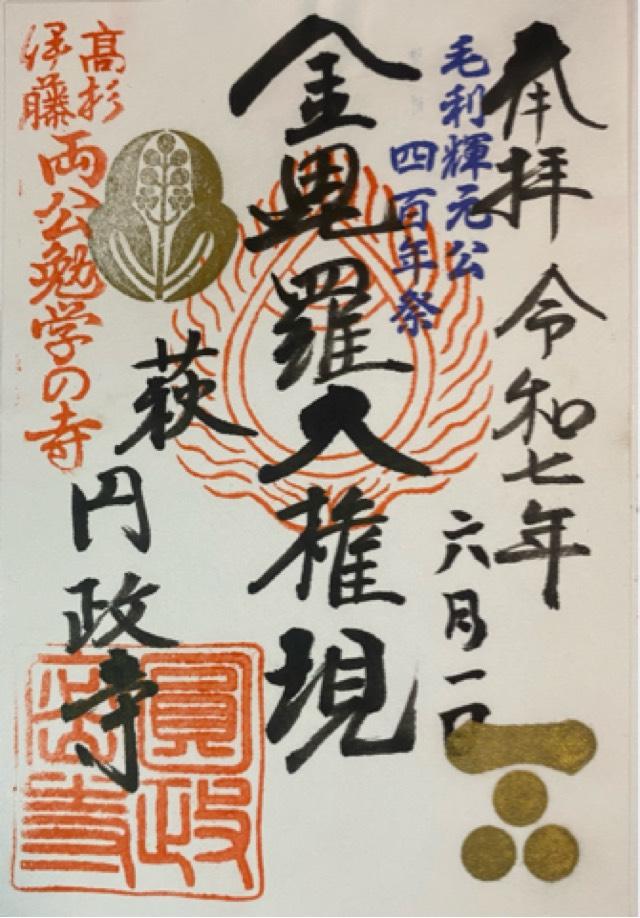 奉拝 令和七年
六月一日
毛利輝元公
四百年祭
金毘羅大権現
萩 円政寺
髙杉
伊藤
両公勉学の寺
圓政